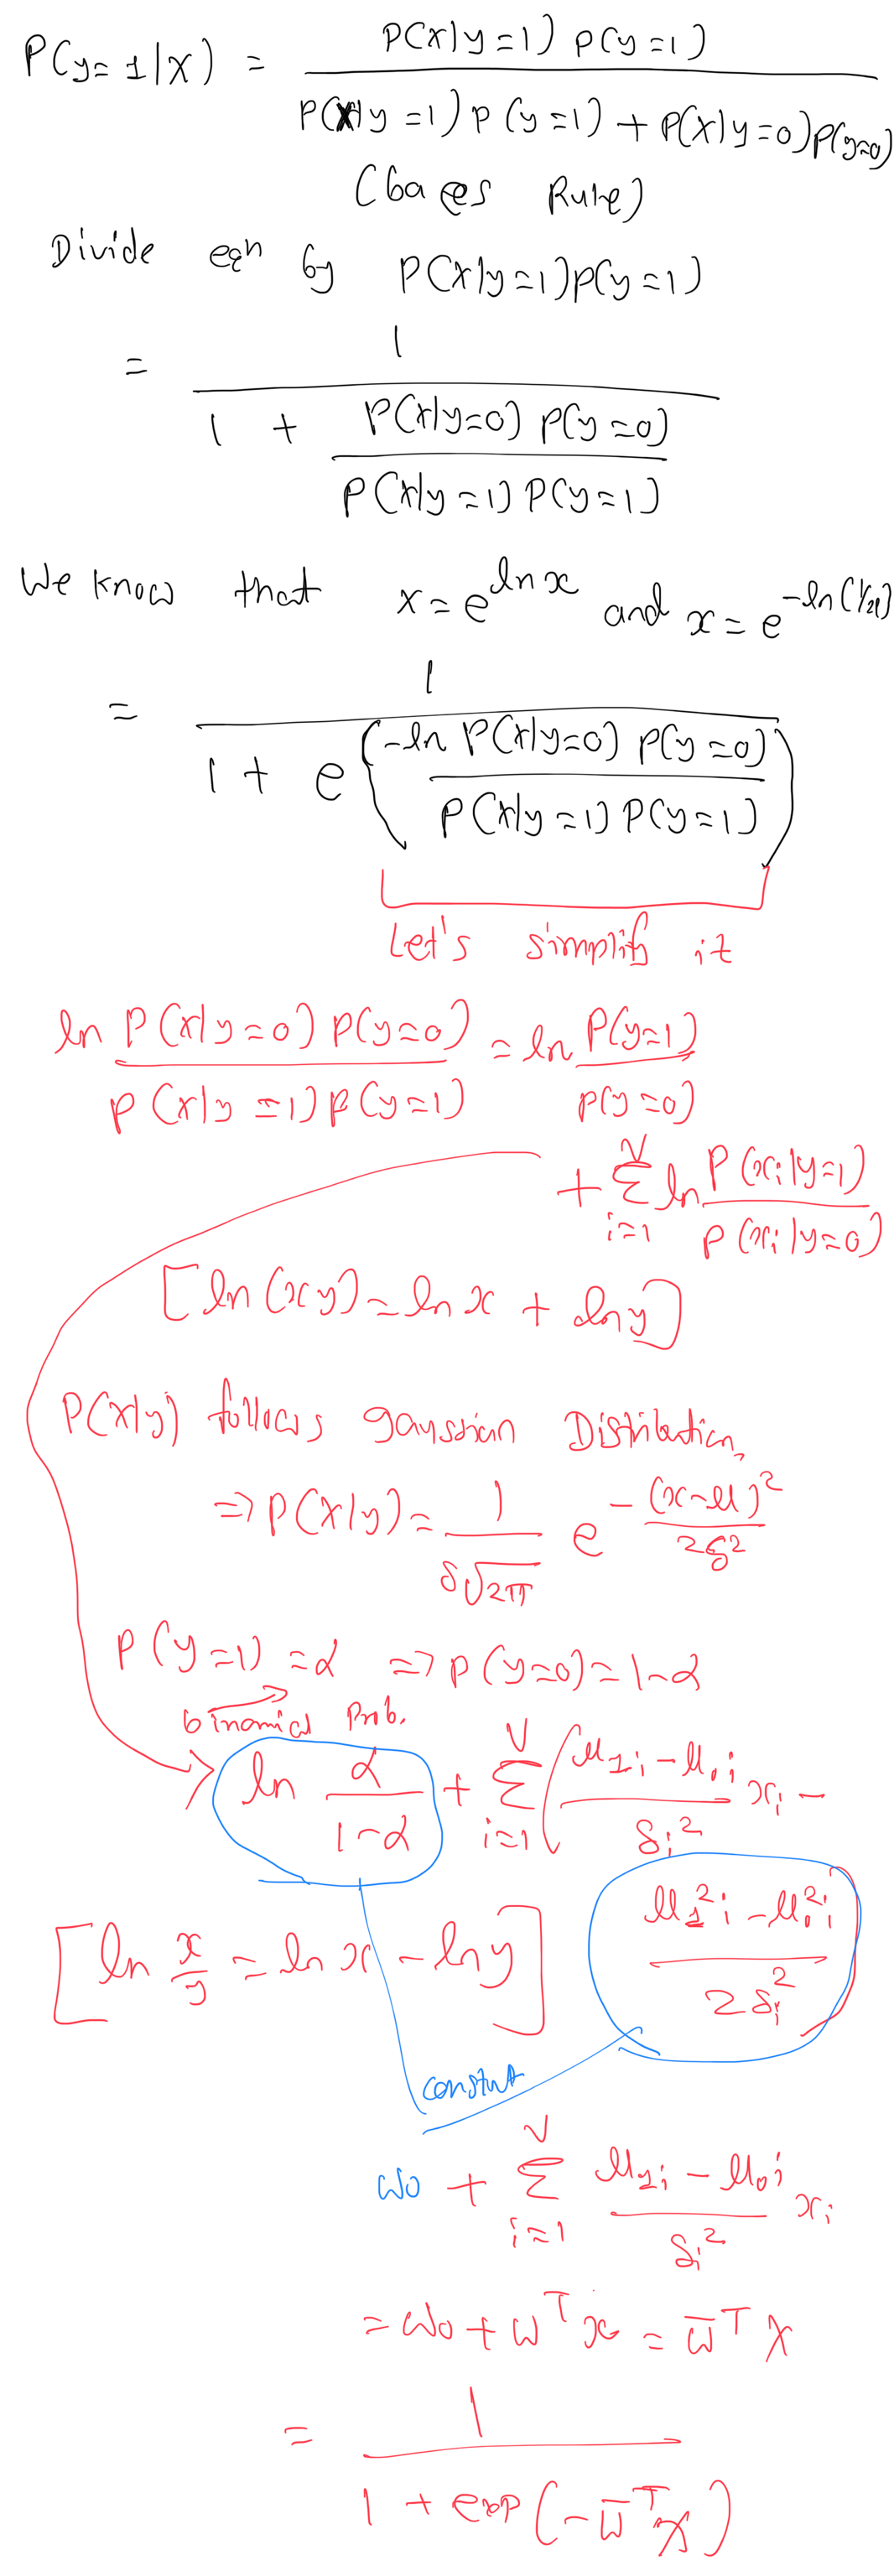 P(y=1|X) = P(X|y=1) P(y=1) / P(X|y=1) P(y=1) + P(X|y=0) P(y=0)
(baes Rule)
Divide eqn by P(X|y=1)P(y=1)
= 1 / 1 + P(X|y=0) P(y=0) / P(X|y=1) P(y=1)
We know that x = e^ln x and x = e^-ln(1/x)
= 1 / 1 + e^(-ln P(X|y=0) P(y=0) / P(X|y=1) P(y=1))
Let's simplify it
ln P(X|y=0) P(y=0) / P(X|y=1) P(y=1) = ln P(y=1) / P(y=0)
+ Σ_{i=1}^V ln P(x_i|y=1) / P(x_i|y=0)
[ln(xy) = ln x + ln y]
P(X|y) follows gaussian Distribution,
=> P(X|y) = 1 / δ√2π e^-(x-μ)² / 2δ²
P(y=1) = α => P(y=0) = 1-α
binomial Prob.
ln α / 1-α + Σ_{i=1}^V (μ_1i - μ_0i / δ_i² x_i -
μ_1²i - μ_0²i / 2δ_i²)
[ln x/y = ln x - ln y]
constant
w0 + Σ_{i=1}^V μ_1i - μ_0i / δ_i² x_i
= w0 + w^T x = w̅^T X
= 1 / 1 + exp(-w̅^T X)